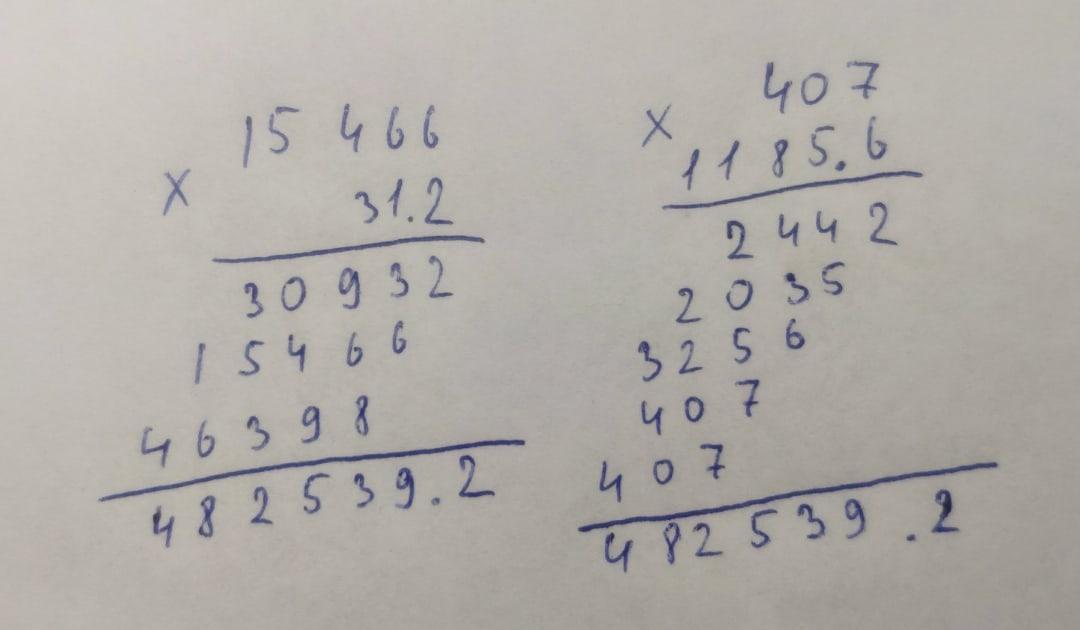 15 466
×
31.2
30932
15466
46398
482539.2
407
×
1185.6
2442
2035
3256
407
407
482539.2